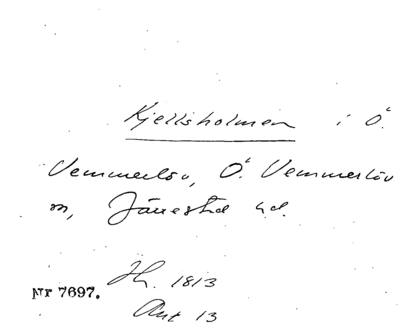 Kjellsholmen i Ö.
Vemmerlöv, Ö. Vemmerlöv
sn, Järrestad hd.
Nr 7697.
1813
Akt 13